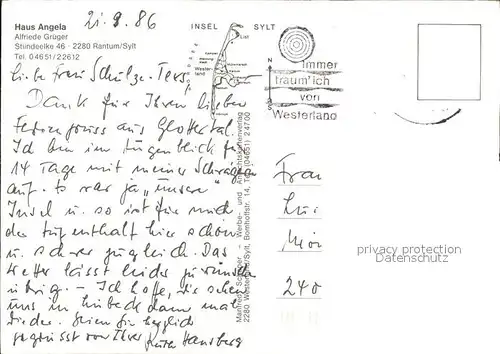 Haus Angela
Alfriede Grüger
Stiindeelke 46 - 2280 Rantum/Sylt
Tel. 04651/22612
21.9.86
INSEL SYLT
List
Westerland
immer
traum'ich
von
Westerland
Liebe Frau Schulze-
Dank für Ihren lieben
Feriengruss aus Glottertal.
Ich bin im Augenblick für
14 Tage mit meiner
auf. Es war ja „unsere"
Insel u. so ist für mich
der Aufenthalt hier schön
u. schwer zugleich. Das
Wetter lässt leider zu wünschen
übrig. - Ich hoffe, wir sehen
uns in Lübeck dann mal
wieder. Seien Sie herzlich
gegrüsst von Ihrer
Manfred - Werbe- und Ansichtskartenverlag
2280 Westerland/Sylt, Bomhoffstr. 14, Tel. (04651) 24700
Frau
240
privacy protection
Datenschutz